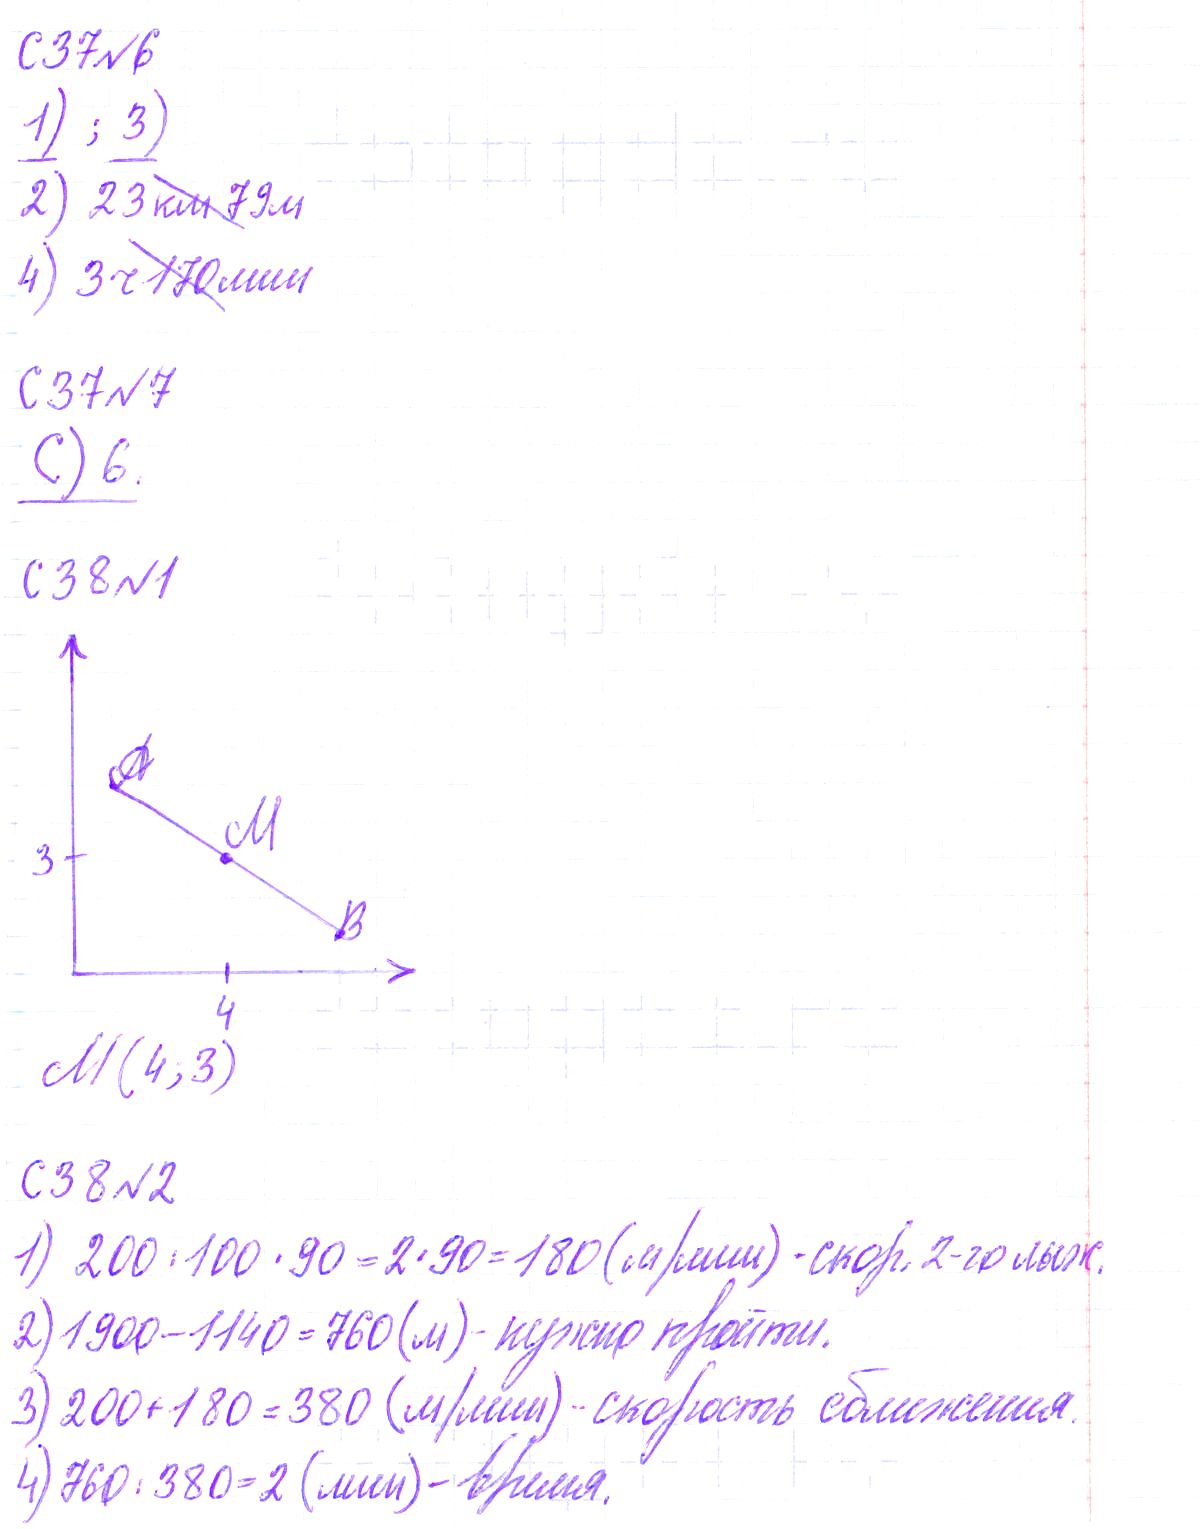 С37№6
1) ; 3)
2) 23км 79м
4) 3ч 170мин
С37№7
С) 6.
С38№1
А
М
3
В
4
М(4;3)
С38№2
1) 200:100·90=2·90=180(м/мин) - скор. 2-го лыж.
2) 1900-1140=760(м) - нужно пройти.
3) 200+180=380 (м/мин) - скорость сближения.
4) 760:380=2 (мин) - время.